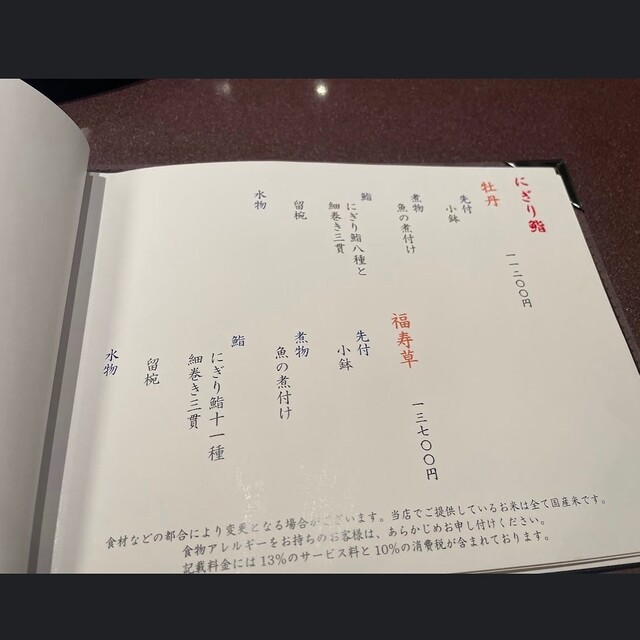 にぎり鮨
牡丹
一一二〇〇円
先付
小鉢
煮物
魚の煮付け
鮨
にぎり鮨八種と
細巻き三貫
留椀
水物
福寿草
一三七〇〇円
先付
小鉢
煮物
魚の煮付け
鮨
にぎり鮨十一種
細巻き三貫
留椀
水物
食材などの都合により変更となる場合がございます。当店でご提供しているお米は全て国産米です。
食物アレルギーをお持ちのお客様は、あらかじめお申し付けください。
記載料金には13%のサービス料と10%の消費税が含まれております。